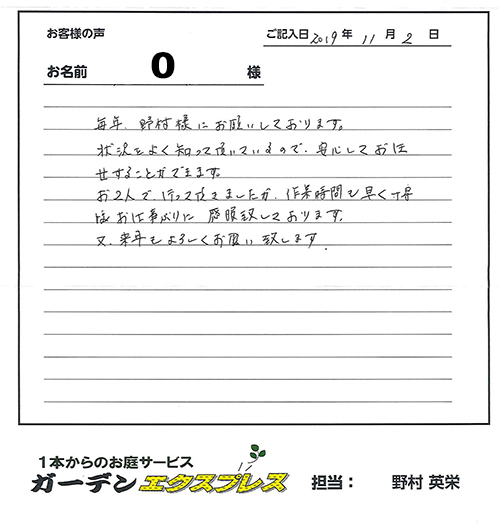 お客様の声
ご記入日 2019 年 11 月 2 日
お名前 O 様
毎年、野村様にお願いしております。
状況をよく知って頂いているので、安心してお任
せすることができます。
お2人で行って頂きましたが、作業時間も早く丁寧
なお仕事ぶりに感服致しております。
又、来年もよろしくお願い致します。
1本からのお庭サービス
ガーデンエクスプレス 担当： 野村 英栄